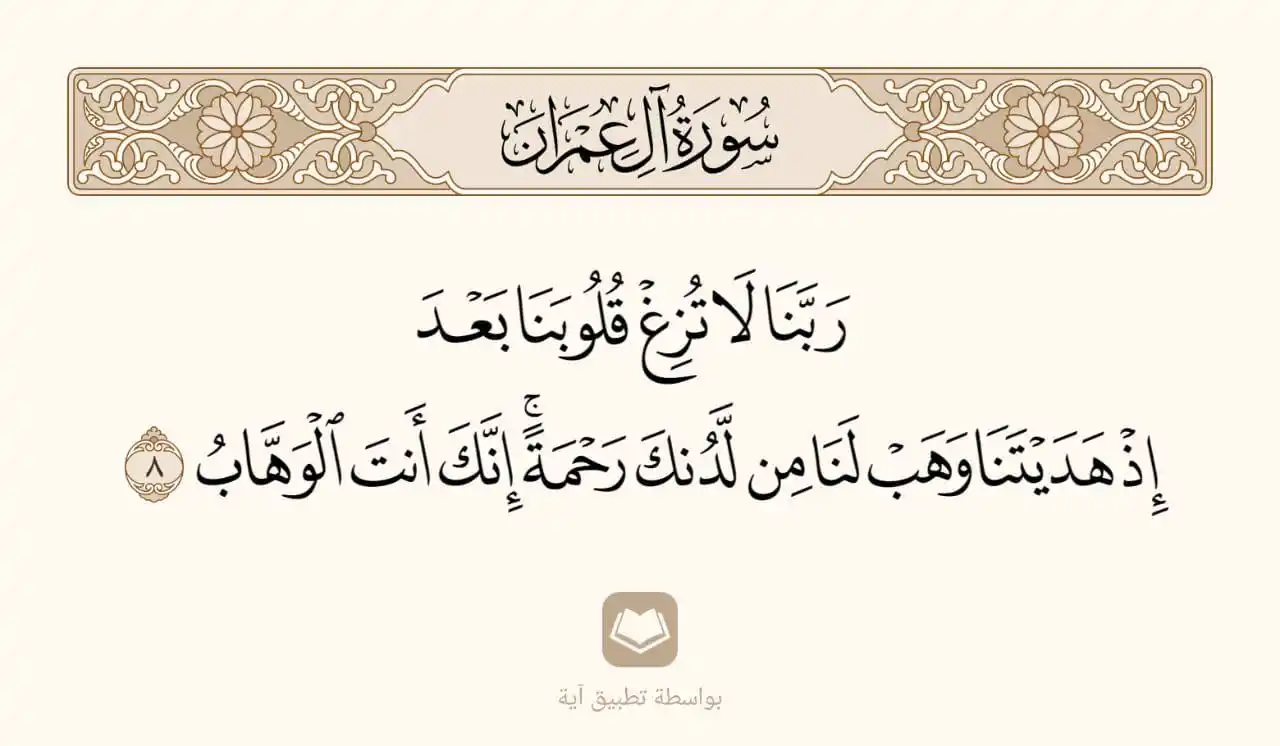 سُورَةُ آلِ عِمْرَانَ
رَبَّنَا لَا تُزِغۡ قُلُوبَنَا بَعۡدَ
إِذۡ هَدَيۡتَنَا وَهَبۡ لَنَا مِن لَّدُنكَ رَحۡمَةًۚ إِنَّكَ أَنتَ ٱلۡوَهَّابُ ٨
بواسطة تطبيق آية